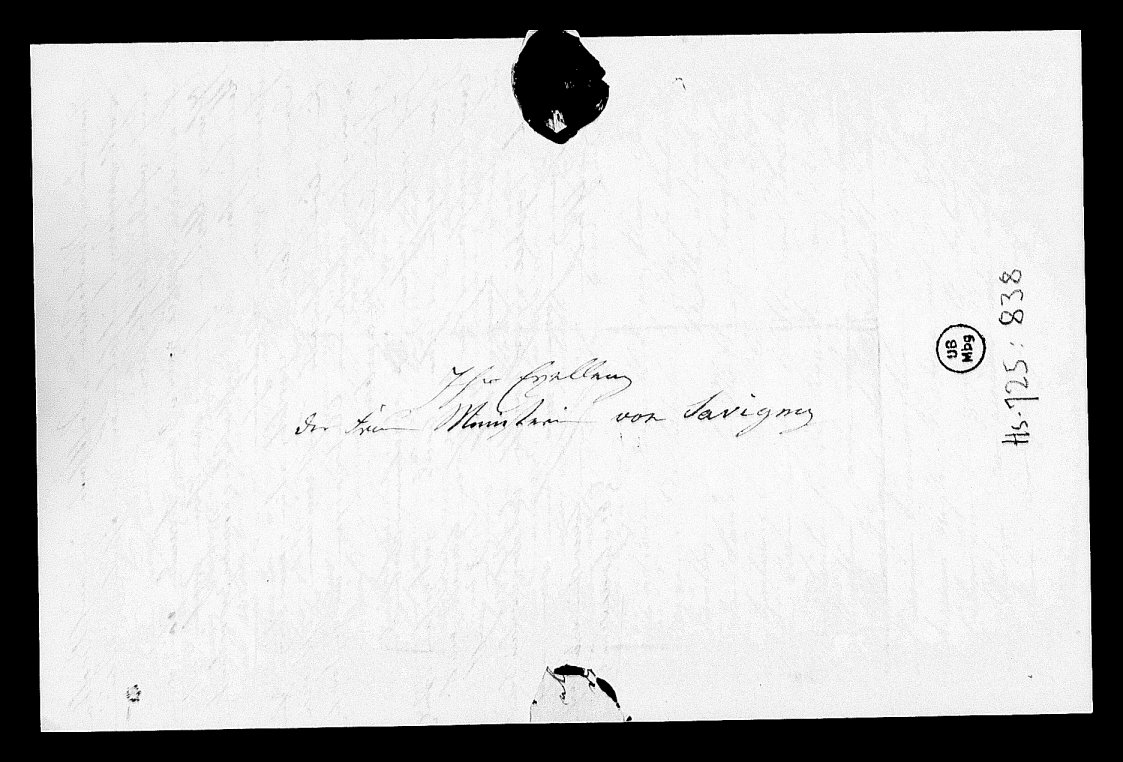 Ihro Exellenz
der Frau Ministerin von Savigny
UB
Mbg
Hs. 725: 838